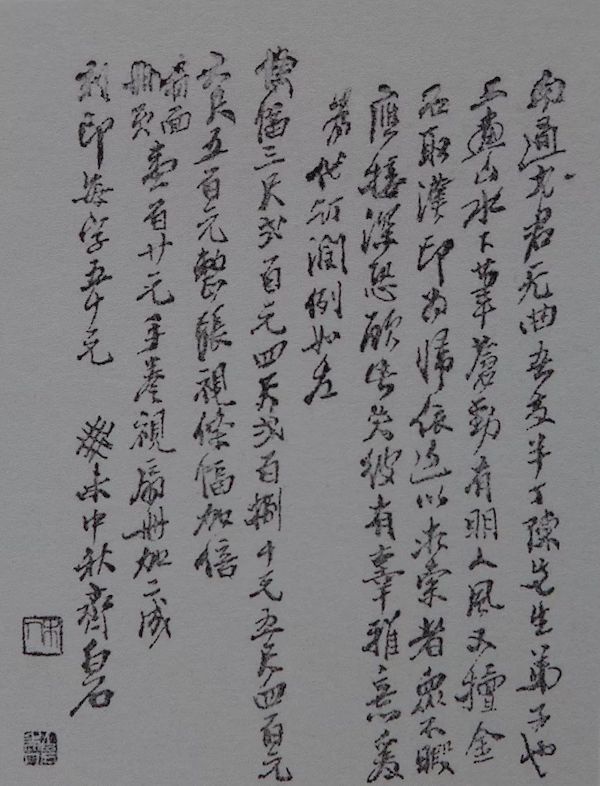 南通尤君无曲吾友半丁陳先生弟子也
工畫山水下筆蒼勁有明人風又擅金
石取漢印為歸依近以求索者眾不暇
應接深恐顧此失彼有辜雅意爰
為代訂潤例如左
橫幅三尺弍百元四尺弍百捌十元五尺四百元
六尺五百元整張視條幅加倍
扇面冊頁壹百廿元手卷視扇冊加二成
刻印每字五十元 癸未中秋齊白石